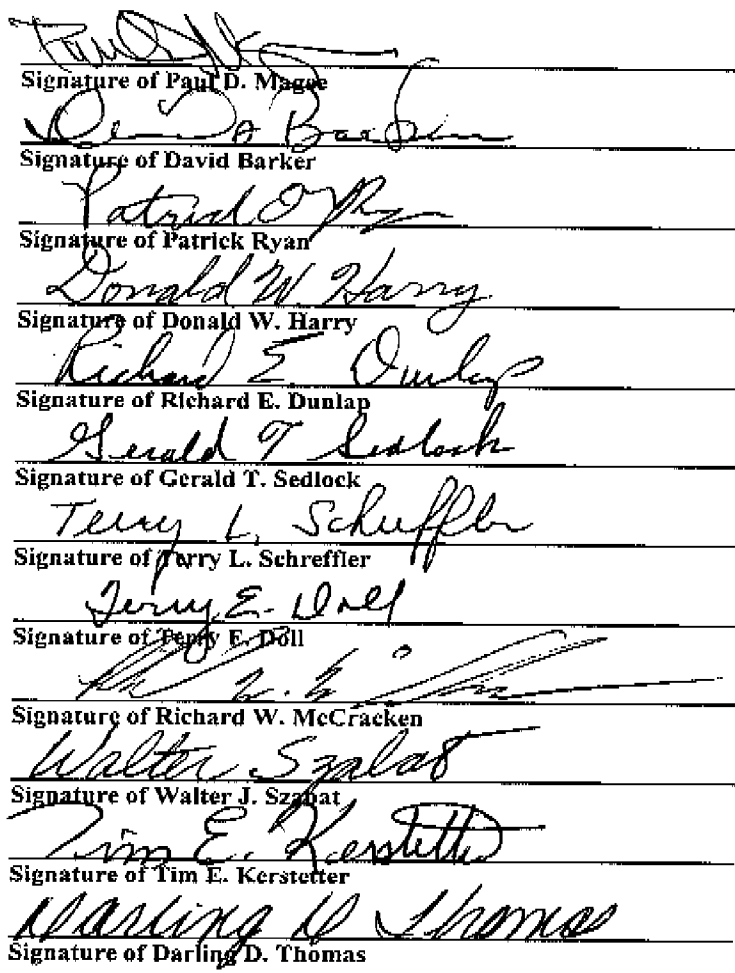 Paul D. M
Signature of Paul D. Magee
David A Barker
Signature of David Barker
Patrick O Ryan
Signature of Patrick Ryan
Donald W Harry
Signature of Donald W. Harry
Richard E Dunlap
Signature of Richard E. Dunlap
Gerald T Sedlock
Signature of Gerald T. Sedlock
Terry L. Schreffler
Signature of Terry L. Schreffler
Terry E. Doll
Signature of Terry E. Doll
Signature of Richard W. McCracken
Walter Szabat
Signature of Walter J. Szabat
Tim E. Kerstetter
Signature of Tim E. Kerstetter
Darling D Thomas
Signature of Darling D. Thomas